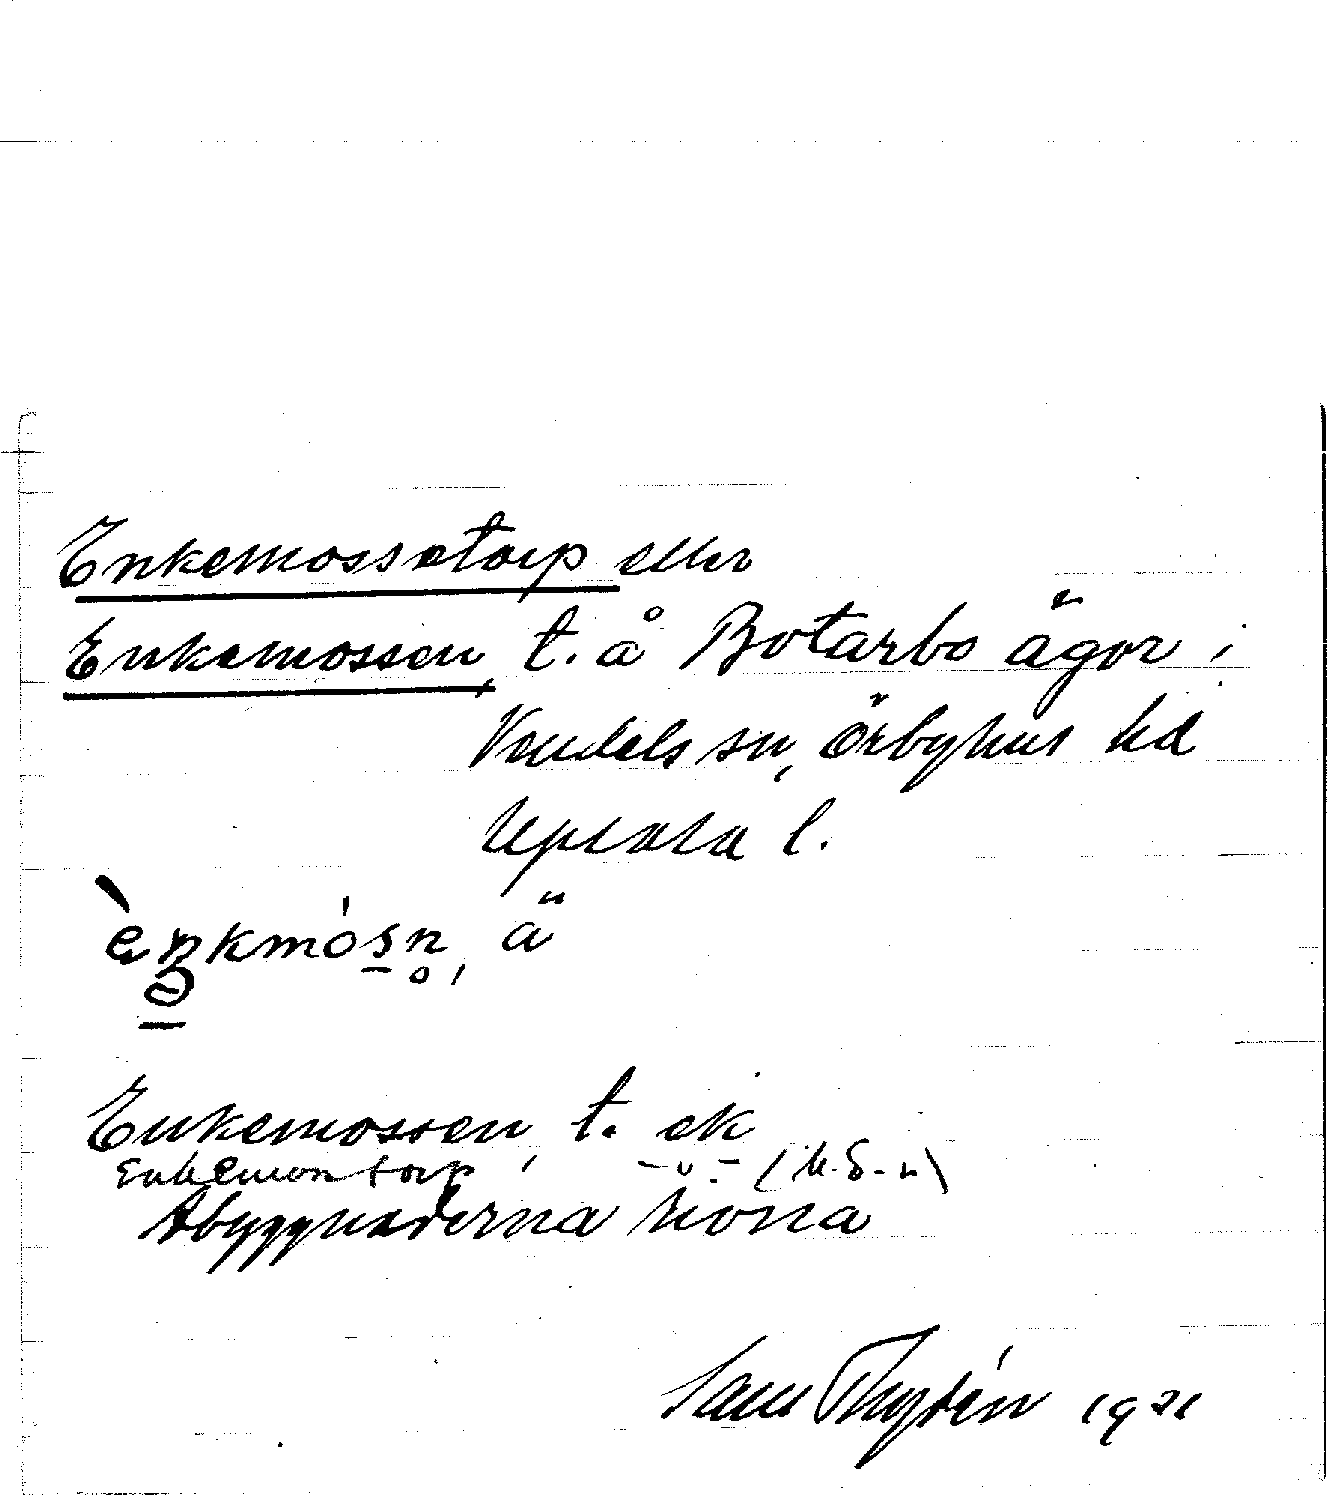 Enkemossetorp eller
Enkemossen, t. å Botarbo ägor i
Vendels sn, Örbyhus hd
Upsala l.
èŋkmósn, ä
Enkemossen, t. ek
Enkemossen torp -"- (M.S-n)
Åbyggnaderna
Sam Thydén 1921